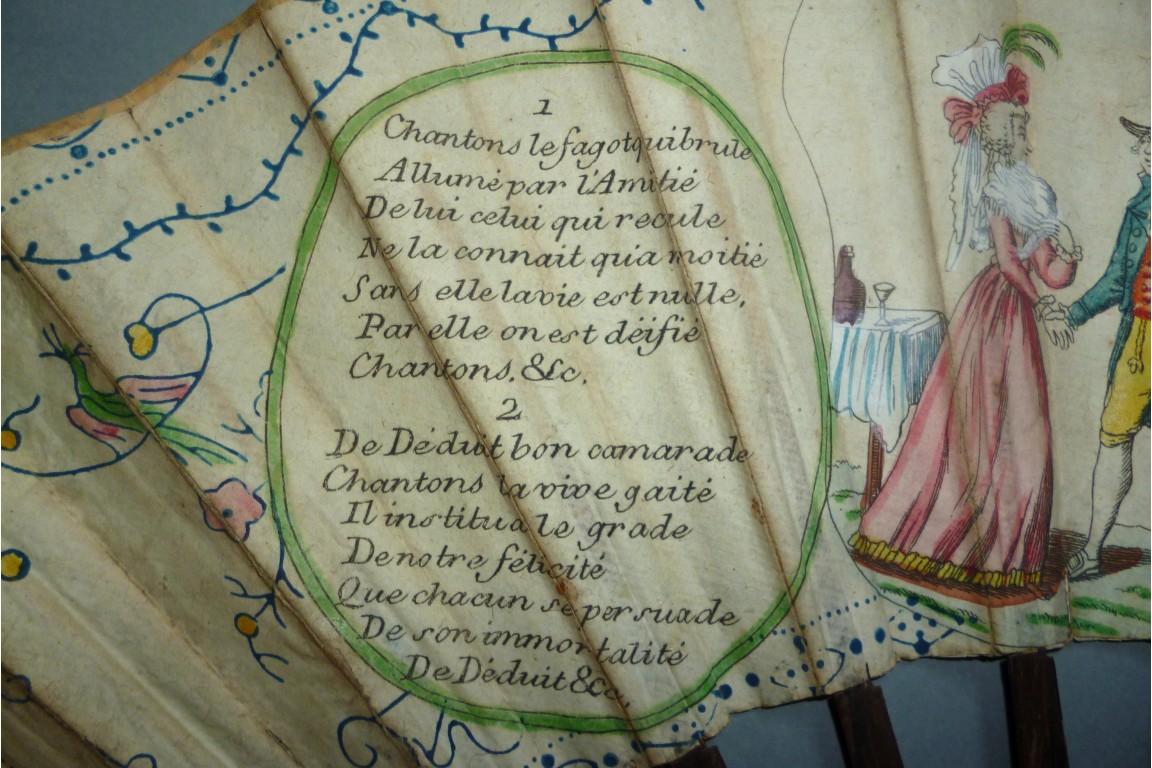 1
Chantons le fagot qui brule
Allumé par l'Amitié
De lui celui qui recule
Ne la connait qu'a moitié
Sans elle la vie est nulle,
Par elle on est dëifié
Chantons, &c.
2
De Déduit bon camarade
Chantons la vive gaité
Il institua le grade
De notre félicité
Que chacun se persuade
De son immortalité
De Déduit &c.